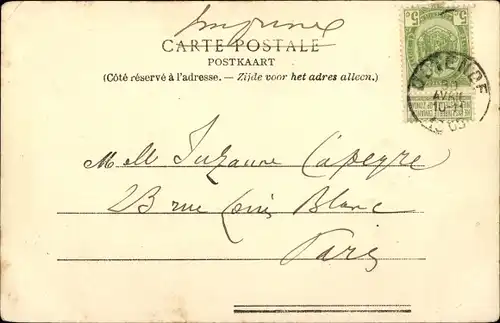 Imprimé
CARTE POSTALE
POSTKAART
(Côté réservé à l'adresse. — Zijde voor het adres alleen.)
5c 5c
OSTENDE
AVRIL
10-11
Mlle Suzanne Capeyre
23 rue Louis Blanc
Paris